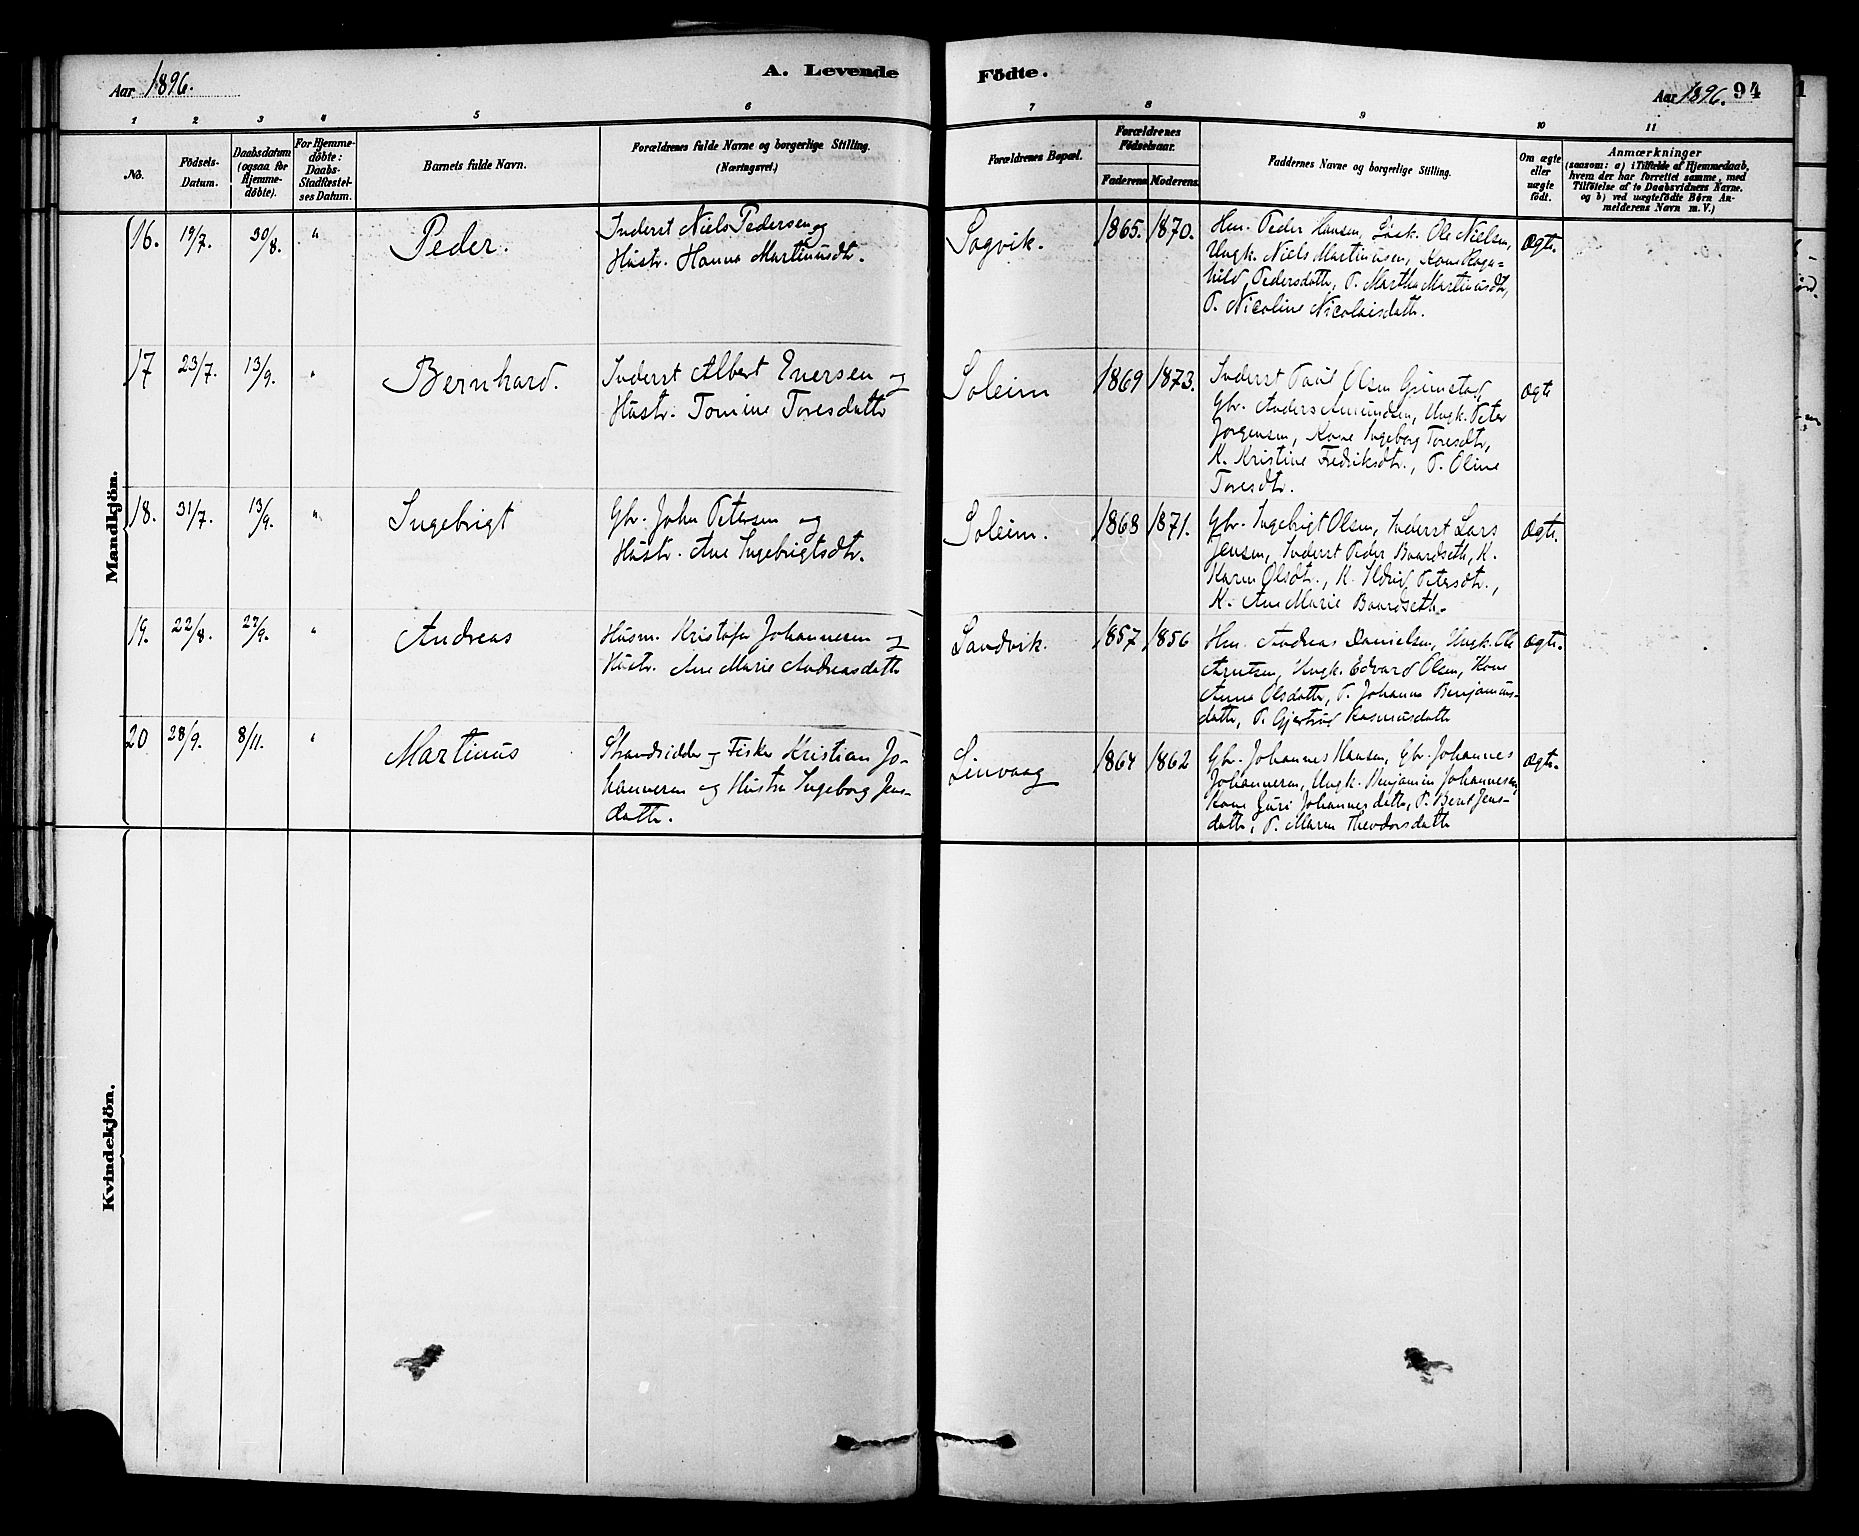 Aar 1896.
A. Levende
Födte.
Aar 1896.
94
1 2 3 4 5 6 7 8 9 10 11
No.
Födsels-
Datum.
Daabsdatum
(ogsaa for
Hjemme-
döbte).
For Hjemme-
döbte:
Daabs-
Stadfæstel-
ses Datum.
Barnets fulde Navn.
Forældrenes fulde Navne og borgerlige Stilling.
(Næringsvei.)
Forældrenes Bopæl.
Forældrenes
Födselsaar.
Faderens Moderens.
Faddernes Navne og borgerlige Stilling.
Om ægte
eller
uægte
födt.
Anmærkninger
(saasom: a) i Tilfælde af Hjemmedaab,
hvem der har forrettet samme, med
Tilföielse af to Daabsvidners Navne.
og b) ved uægtefödte Börn An-
melderens Navn m.V.)
Mandkjön.
16. 19/7. 30/8. " Peder.
Inderst Niels Pedersen og
Hustr. Hanna Martinusdtr.
Sagvik. 1865. 1870.
Hm. Peder Hansen, Ole Nielsen,
Ungk. Niels Martinusen, Kone Ragn-
hild Pedersdatter, P. Martha Martinusdtr,
P. Nicoline Nicolaisdatr.
Ægte.
17 23/7. 13/9. " Bernhard.
Inderst Albert Iversen og
Hustr. Tomine Toresdattr
Soleim 1869 1873.
Inderst Paul Olsen Grimstad,
Gbr. Anders Amundsen, Ungk. Peter
Jørgensen, Kone Ingeborg Toresdtr,
K. Kristine Fredriksdtr., P. Oline
Toresdtr.
Ægte
18. 31/7. 13/9. " Ingebrigt
Gbr. John Petersen og
Hustr. Ane Ingebrigtsdtr.
Soleim. 1868 1871.
Gbr. Ingebrigt Olsen, Inderst Lars
Jensen, Inderst Peder Baardseth, K.
Karen Olsdtr., K. Petersdtr.,
K. Ane Marie Baardseth.
Ægte.
19. 22/8. 27/9. " Andreas
Husm. Kristofer Johannesen og
Hustr. Ane Marie Andreasdattr
Sandvik. 1857 1856
Hm. Andreas Danielsen, Ungk. Ole
Arntsen, Ungk. Edvard Olsen, Kone
Anna Olsdattr, P. Johanna Benjamins-
dattr, P. Gjertrud Rasmusdattr
Ægte.
20 28/9. 8/11. " Martinus
Strandsidder og Fisker Kristian Jo-
hannesen og Hustru Ingeborg Jens-
datter.
Linvaag 1864 1862
Gbr. Johannes Hansen, Gbr. Johannes
Johannesen, Ungk. Benjamin Johannesen,
Kone Guri Johannesdattr, P. Berit Jens-
dattr, P. Maren Theodorsdattr
Ægte.
Kvindekjön.